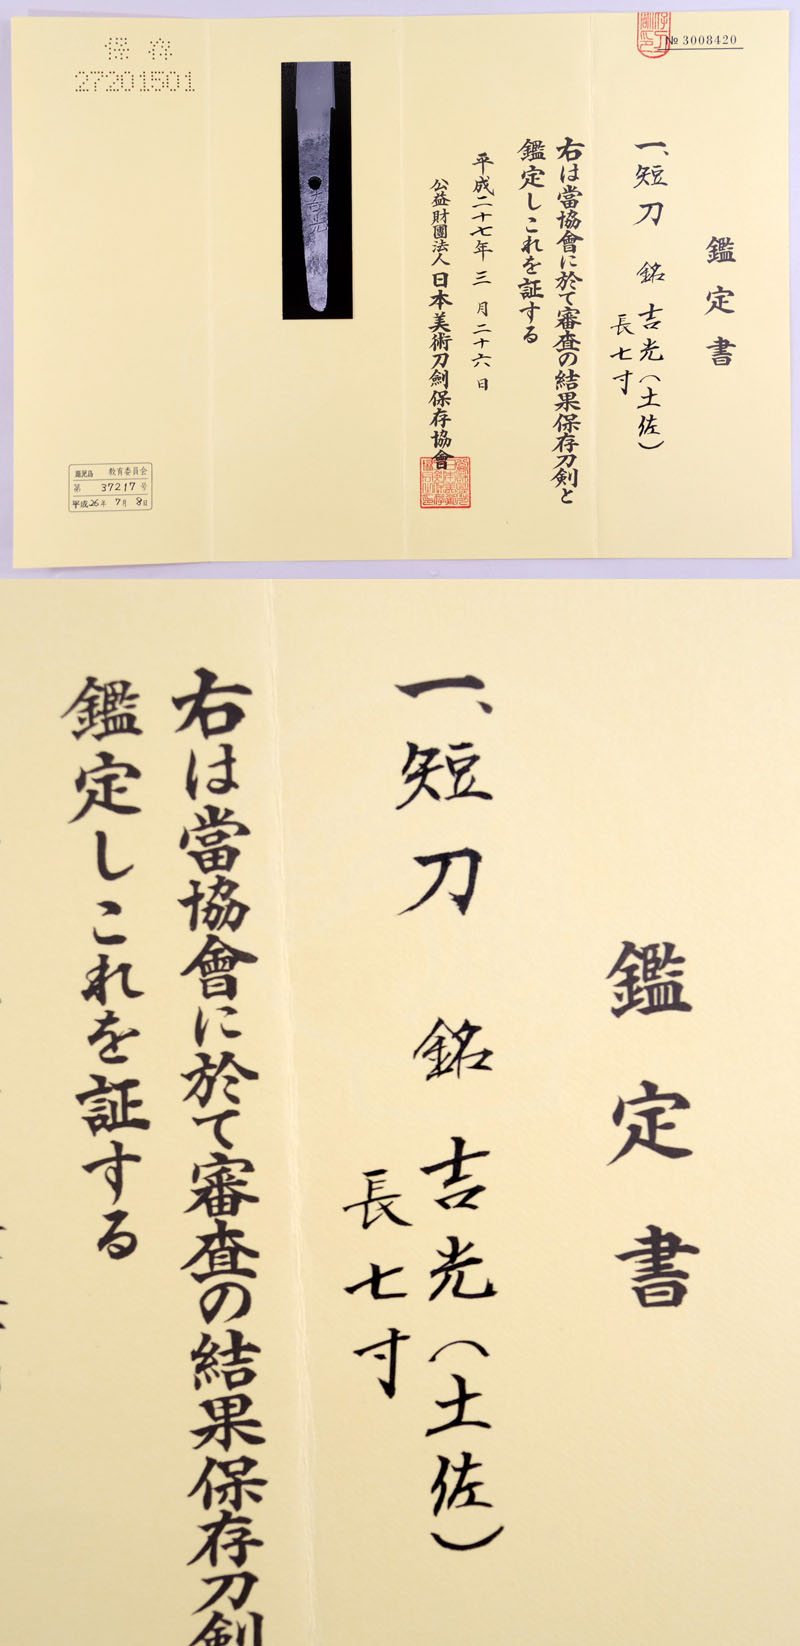 № 3008420
鑑定書
一、短刀 銘 吉光(土佐)
長七寸
右は當協會に於て審査の結果保存刀剣と
鑑定しこれを証する
平成二十七年 三 月 二十六 日
公益財團法人 日本美術刀劍保存協會
吉光
保 存
27201501
鹿児島 教育委員会
第 37217 号
平成26年 7月 8日
鑑定書
一、短刀 銘 吉光(土佐)
長七寸
右は當協會に於て審査の結果保存刀剣
鑑定しこれを証する